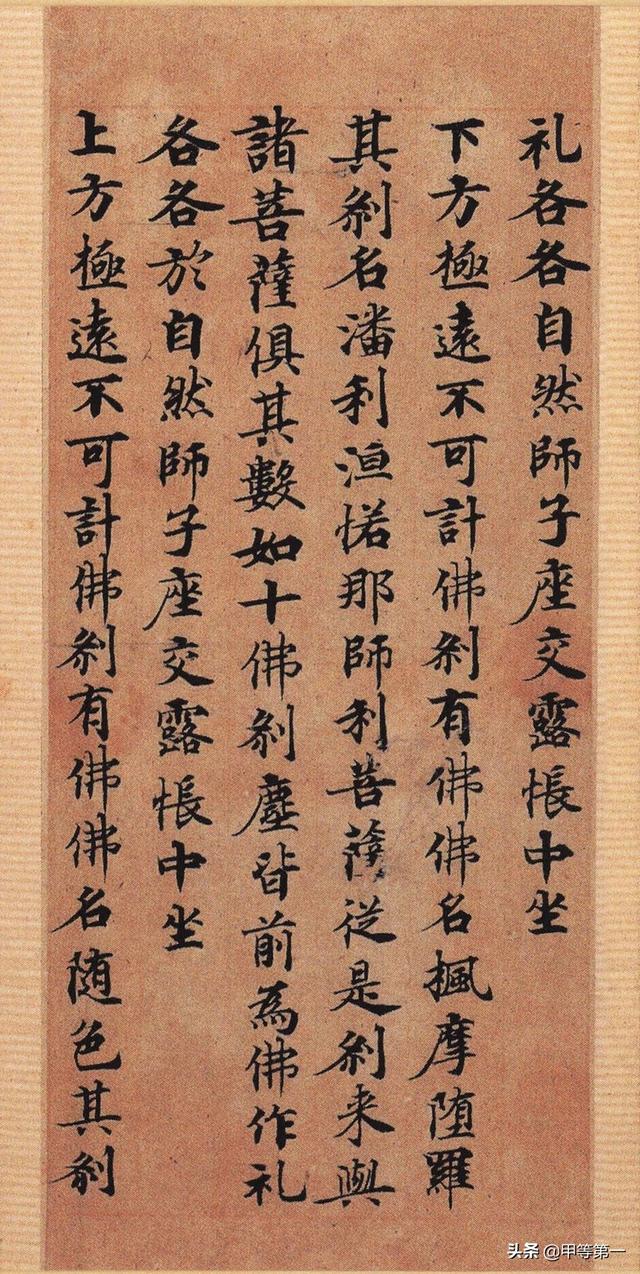 礼各各自然師子座交露帳中坐
下方極遠不可計佛刹有佛佛名楓摩堕羅
其刹名潘利洹惦那師利菩薩従是刹来與
諸菩薩俱其數如十佛刹塵皆前為佛作礼
各各於自然師子座交露帳中坐
上方極遠不可計佛刹有佛佛名随色其刹
头条 @甲等第一